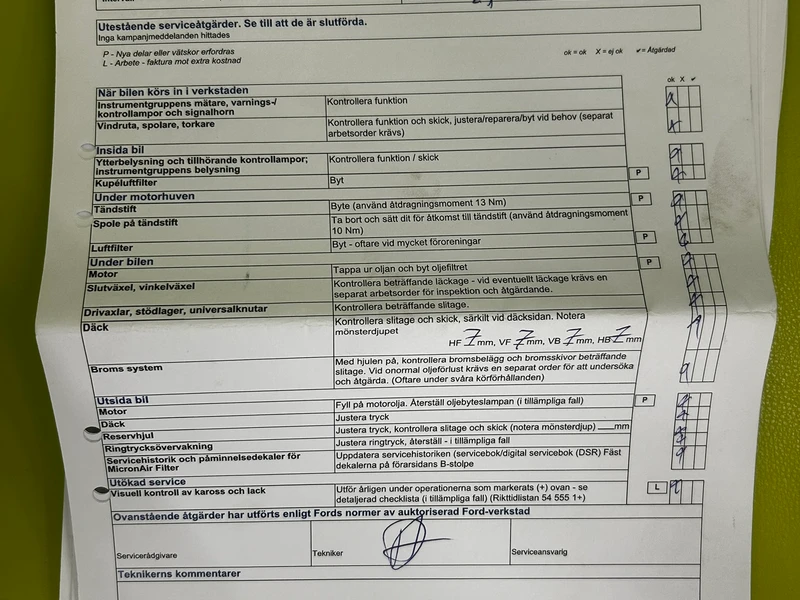 Utestående serviceåtgärder. Se till att de är slutförda.
Inga kampanjmeddelanden hittades
P - Nya delar eller vätskor erfordras
L - Arbete - faktura mot extra kostnad
ok = ok X = ej ok ✔ = Åtgärdad
ok X ✔
När bilen körs in i verkstaden
Instrumentgruppens mätare, varnings-/
kontrollampor och signalhorn
Kontrollera funktion
Vindruta, spolare, torkare
Kontrollera funktion och skick, justera/reparera/byt vid behov (separat
arbetsorder krävs)
Insida bil
Ytterbelysning och tillhörande kontrollampor;
instrumentgruppens belysning
Kontrollera funktion / skick
Kupéluftfilter
Byt
P
Under motorhuven
Tändstift
Byte (använd åtdragningsmoment 13 Nm)
P
Spole på tändstift
Ta bort och sätt dit för åtkomst till tändstift (använd åtdragningsmoment
10 Nm)
Luftfilter
Byt - oftare vid mycket föroreningar
P
Under bilen
Motor
Tappa ur oljan och byt oljefiltret
P
Slutväxel, vinkelväxel
Kontrollera beträffande läckage - vid eventuellt läckage krävs en
separat arbetsorder för inspektion och åtgärdande.
Drivaxlar, stödlager, universalknutar
Kontrollera beträffande slitage.
Däck
Kontrollera slitage och skick, särkilt vid däcksidan. Notera
mönsterdjupet
HF 7 mm, VF 7 mm, VB 7 mm, HB 7 mm
Broms system
Med hjulen på, kontrollera bromsbelägg och bromsskivor beträffande
slitage. Vid onormal oljeförlust krävs en separat order för att undersöka
och åtgärda. (Oftare under svåra körförhållanden)
Utsida bil
Motor
Fyll på motorolja. Återställ oljebyteslampan (i tillämpliga fall)
P
Däck
Justera tryck
Reservhjul
Justera tryck, kontrollera slitage och skick (notera mönsterdjup) ___mm
Ringtrycksövervakning
Justera ringtryck, återställ - i tillämpliga fall
Servicehistorik och påminnelsedekaler för
MicronAir Filter
Uppdatera servicehistoriken (servicebok/digital servicebok (DSR) Fäst
dekalerna på förarsidans B-stolpe
Utökad service
Visuell kontroll av kaross och lack
Utför årligen under operationerna som markerats (+) ovan - se
detaljerad checklista (i tillämpliga fall) (Rikttidlistan 54 555 1+)
L
Ovanstående åtgärder har utförts enligt Fords normer av auktoriserad Ford-verkstad
Servicerådgivare
Tekniker
Serviceansvarig
Teknikerns kommentarer